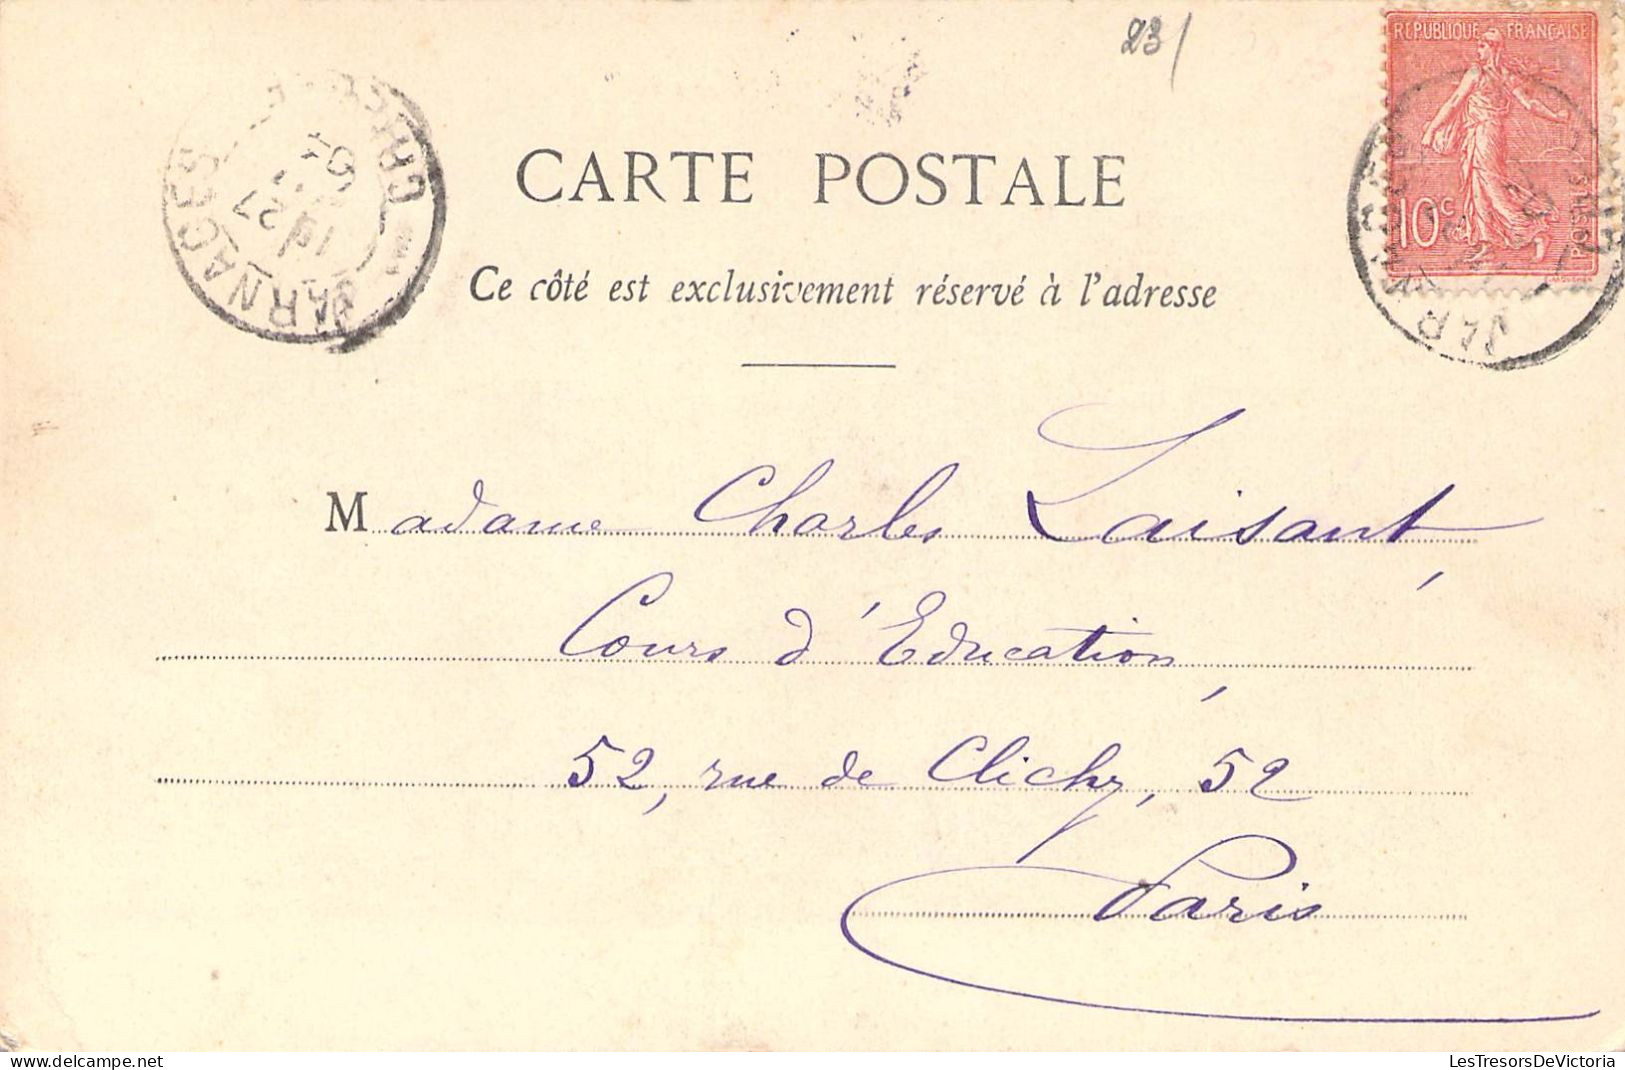 23/
REPUBLIQUE FRANÇAISE
10c
POSTES
JARNAGES CREUSE
27
04
CARTE POSTALE
Ce côté est exclusivement réservé à l'adresse
Madame Charles Laisant,
Cours d'Education,
52, rue de Clichy, 52
Paris
LesTresorsDeVictoria